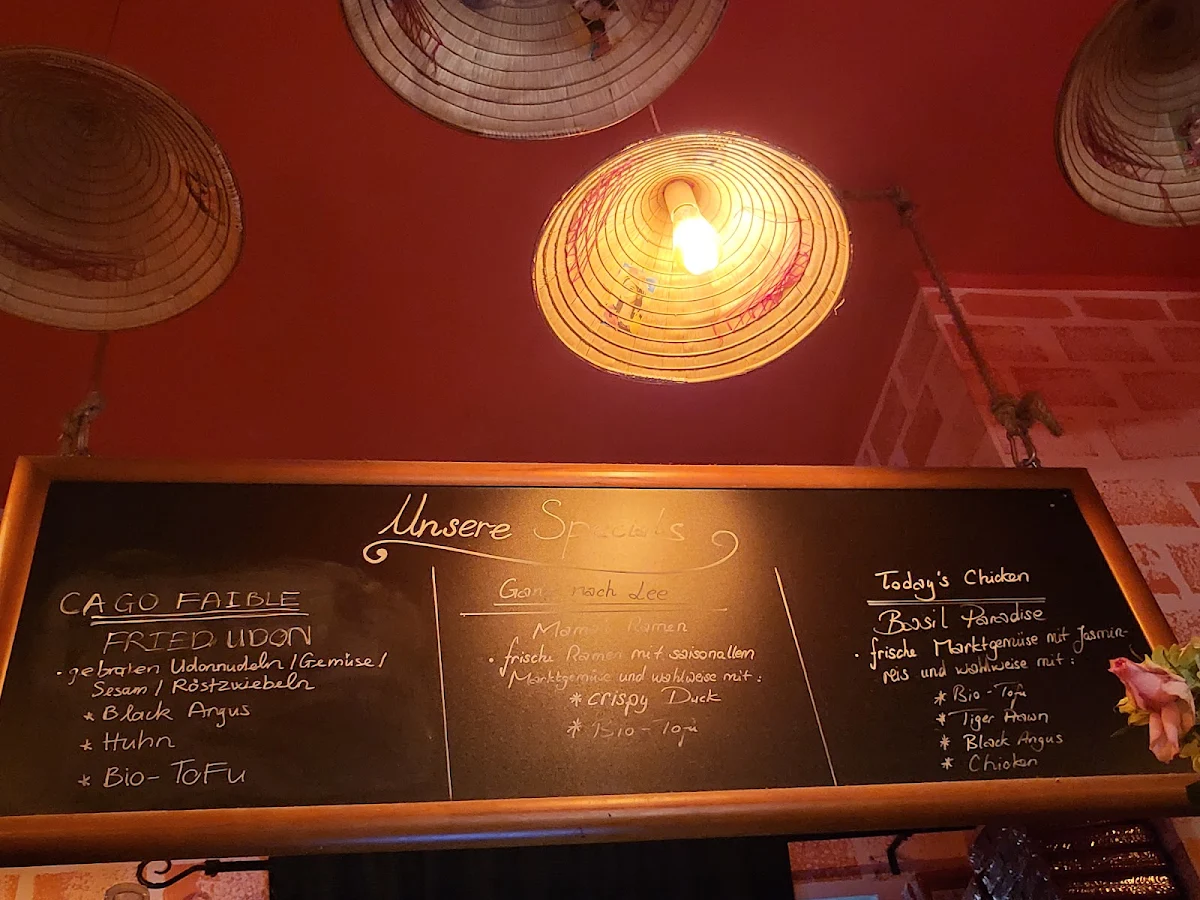 Unsere Specials
CAGO FAIBLE
FRIED UDON
· gebraten Udonnudeln / Gemüse /
Sesam / Röstzwiebeln
* Black Angus
* Huhn
* Bio-ToFu
nach Lee
Ramen
· frische Ramen mit saisonallem
Marktgemüse und wahlweise mit :
* crispy Duck
* Bio-Tofu
Today's Chicken
Basil Paradise
· frische Marktgemüse mit Jasmin-
reis und wahlweise mit :
* Bio-Tofu
* Tiger Prawn
* Black Angus
* Chicken